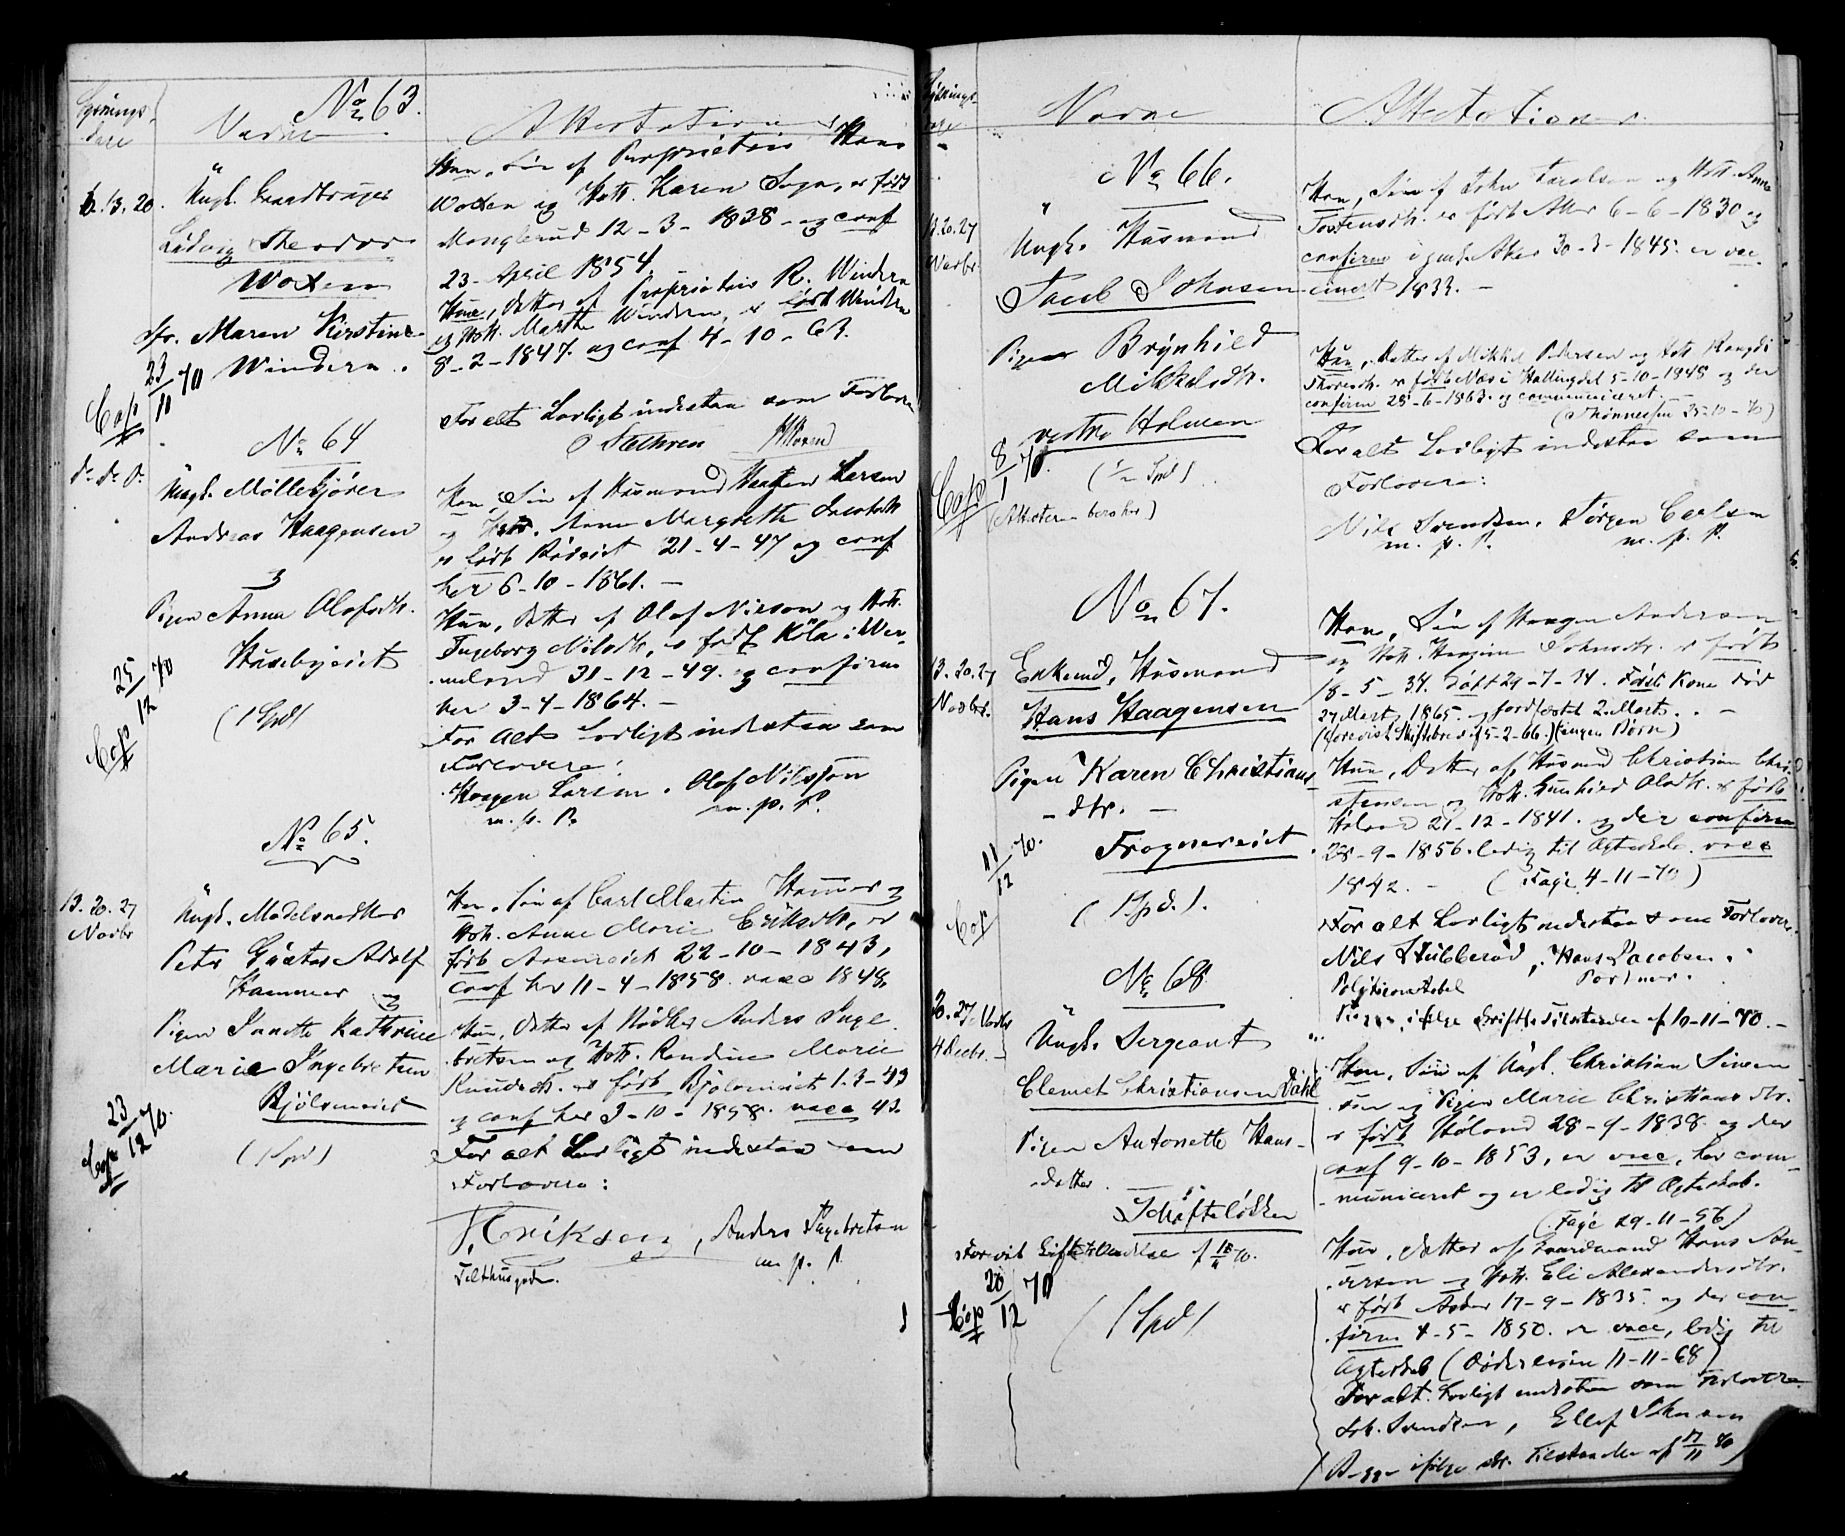 No 63.
Lysnings-
dage
Navne
Attestationer
6. 13. 20.
Ungk. Gaardbruger
Ludvig Theodor
Woxen
Fr. Maren Kirstine
Windern.
Cop 23/11 70
Han, Søn af Proprietær Hans
Woxen og Hstr. Karen Sogn, er født
Manglerud 12-3-1838 og conf
23 April 1854
Hun, Datter af Proprietær R. Windern
og Hstr. Marthe Windern, er født Windern
8-2-1847. og conf 4-10-63.
For alt Lovligt indestaa som Forlovere
No 64
do do do
Ungk. Møllekjører
Andreas Haagensen
Pigen Anna Olafsdtr.
Husebyeiet
(1 Spd)
Cop 25/12 70
Han, Søn af Husmand Haagen Larsen
og Hstr. Anne Margrethe Jacobsdtr
er født 21-4-47 og conf
her 6-10-1861.-
Hun, Datter af Olaf Nilson og Hstr.
Ingeborg Nilsdtr, er født Köla i Wer-
meland 31-12-49. og confirm
her 3-4-1864.-
For alt Lovligt indestaa som
Forlovere:
Haagen Larsen. Olaf Nilsson
m. p. P. m. p. P.
No 65.
13. 20. 27
Novbr
Ungk. Modelsnedker
Peter Gustav Adolf
Hammer og
Pigen Janette Kathrine
Marie Ingebretsen
Bjølseneiet
(1 Spd)
Cop 23/12 70.
Han, Søn af Carl Martin Hammer og
Hstr. Anne Marie Eriksdtr, er
født 22-10-1843,
conf her 11-4-1858. vacc 1848.
Hun, Datter af Snedker Anders Inge-
bretsen og Hstr. Randine Marie
Knudsdtr. er født Bjølseneiet 1-3-43
og conf her 3-10-1858. vacc 43.
For alt Lovligt indestaa som
Forlovere:
Eriksen, Anders Ingebretsen
m. p. P.
Lysnings-
dage
Navne
Attestationer
No 66.
13. 20. 27
Novbr.
Ungk. Husmand
Jacob Johnsen
Pigen Brynhild
Mikkelsdtr.
vestre Holmen
(1/2 Spd)
Cop 8/1 70.
Han, Søn af John Jacobsen og Hstr. Anne
Tostensdtr. er født Aker 6-6-1830 og
confirm i Aker 30-3-1845. er vac-
cineret 1833.-
Hun, Datter af Mikkel Pedersen og Hstr. Rangdi
er født Næs i Hallingdal 5-10-1848 og der
confirm 28-6-1863. og communiceret.-
For alt Lovligt indestaa som
Forlovere:
Nils Svendsen, Jørgen Carlsen
m. p. P. m. p. P.
No 67.
13. 20. 27
Novbr.
Enkemd, Husmand
Hans Haagensen
Pigen Karen Christians-
dtr.-
Frognereiet
(1 Spd.).
Cop 11/12 70.
Han, Søn af Haagen Andersen
og Hstr. er født
18-5-34. Døbt 29-7-34. Første Kone død
27 Marts 1865. og jordfæstet 2 Marts.-
(Forevist Skiftebrev af 5-2-66.) (ingen Børn)
Hun, Datter af Husmand Christian Chri-
stensen og Hstr. Gunhild Olsdtr. er født
Høland 21-12-1841. og der confirm
28-9-1856. ledig til Ægteskab. vacc
1842.- (Faye 4-11-70)
For alt Lovligt indestaa som Forlovere.
Nils Stubberud, Hans Jacobsen.
Portner.
ifølge Skifts Tilstaaelse af 10-11-70.-
No 68
20. 27 Novbr
4 Decbr.-
Ungk. Sergeant
Clemet Christiansen Dahl
Pigen Antonette Hans-
datter.
Schafteløkken
Forevist Giftetilladelse af 18/11 70.
(1 Spd)
Cop 20/12 70
Han, Søn af Ungk. Christian Simen-
sen og Pigen Marie Christiansdtr.
er født Høland 28-9-1838. og der
conf 9-10-1853, er vacc, har com-
municeret og er ledig til Ægteskab.
(Faye 29-11-56)
Hun, Datter af Gaardmand Hans An-
dersen og Hstr. Eli Alexandersdtr.
er født 17-9-1835. og der con-
firm 4-5-1850. er vacc, ledig til
Ægteskab (11-11-68)
For alt Lovligt indestaa som Forlovere
Joh. Svendsen, Ellef Johnsen
ifølge Tilstaaelse af 17/11 70